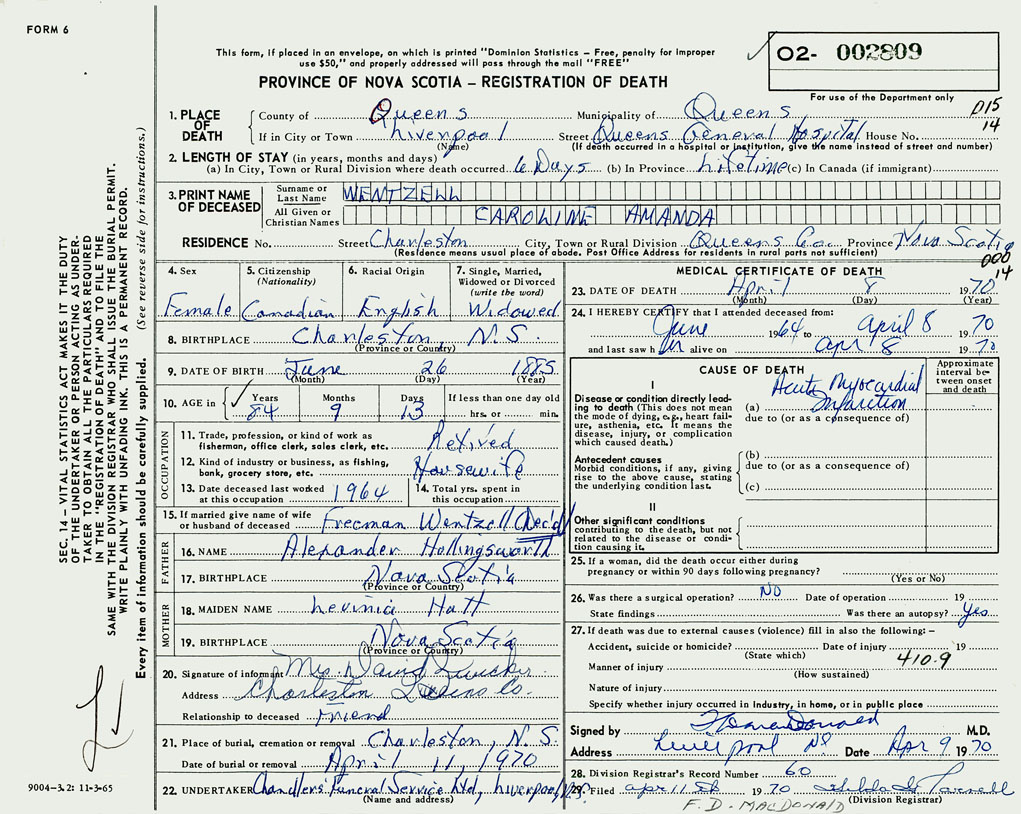 FORM 6
This form, if placed in an envelope, on which is printed "Dominion Statistics – Free, penalty for improper
use $50," and properly addressed will pass through the mail "FREE"
PROVINCE OF NOVA SCOTIA – REGISTRATION OF DEATH
O2- 002809
For use of the Department only
D15
14
1. PLACE OF DEATH
County of Queens Municipality of Queens
If in City or Town Liverpool Street Queens General Hospital House No.
(Name) (If death occurred in a hospital or institution, give the name instead of street and number)
2. LENGTH OF STAY (in years, months and days)
(a) In City, Town or Rural Division where death occurred 6 Days (b) In Province Lifetime (c) In Canada (if immigrant)
3. PRINT NAME OF DECEASED
Surname or Last Name WENTZELL
All Given or Christian Names CAROLINE AMANDA
RESIDENCE No. Street Charleston City, Town or Rural Division Queens Co. Province Nova Scotia
(Residence means usual place of abode. Post Office Address for residents in rural parts not sufficient)
000
14
4. Sex
Female
5. Citizenship
(Nationality)
Canadian
6. Racial Origin
English
7. Single, Married,
Widowed or Divorced
(write the word)
Widowed
8. BIRTHPLACE Charleston, N.S.
(Province or Country)
9. DATE OF BIRTH June 26 1885
(Month) (Day) (Year)
10. AGE in Years Months Days If less than one day old
84 9 13 hrs. or min.
OCCUPATION
11. Trade, profession, or kind of work as
fisherman, office clerk, sales clerk, etc. Retired
12. Kind of industry or business, as fishing,
bank, grocery store, etc. Housewife
13. Date deceased last worked
at this occupation 1964
14. Total yrs. spent in
this occupation
15. If married give name of wife
or husband of deceased Freeman Wentzell (Dec'd)
FATHER
16. NAME Alexander Hollingsworth
17. BIRTHPLACE Nova Scotia
(Province or Country)
MOTHER
18. MAIDEN NAME Levinia Hatt
19. BIRTHPLACE Nova Scotia
(Province or Country)
20. Signature of informant Mrs. David
Address Charleston Queens Co.
Relationship to deceased Friend
21. Place of burial, cremation or removal Charleston, N.S.
Date of burial or removal April 11, 1970
22. UNDERTAKER Chandlers Funeral Service Ltd, Liverpool, N.S.
(Name and address)
MEDICAL CERTIFICATE OF DEATH
23. DATE OF DEATH April 8 1970
(Month) (Day) (Year)
24. I HEREBY CERTIFY that I attended deceased from:
June 1964 to April 8 1970
and last saw her alive on Apr 8 1970
CAUSE OF DEATH
Approximate
interval be-
tween onset
and death
I
Disease or condition directly lead-
ing to death (This does not mean
the mode of dying, e.g., heart fail-
ure, asthenia, etc. It means the
disease, injury, or complication
which caused death.)
(a) Acute Myocardial
Infarction
due to (or as a consequence of)
Antecedent causes
Morbid conditions, if any, giving
rise to the above cause, stating
the underlying condition last.
(b)
due to (or as a consequence of)
(c)
II
Other significant conditions
contributing to the death, but not
related to the disease or condi-
tion causing it.
25. If a woman, did the death occur either during
pregnancy or within 90 days following pregnancy?
(Yes or No)
26. Was there a surgical operation? NO Date of operation 19
State findings Was there an autopsy? Yes
27. If death was due to external causes (violence) fill in also the following:–
Accident, suicide or homicide? Date of injury 19
(State which)
410.9
Manner of injury
(How sustained)
Nature of injury
Specify whether injury occurred in industry, in home, or in public place
Signed by M.D.
Address Liverpool NS Date Apr 9 1970
28. Division Registrar's Record Number 60
29. Filed April 1970
(Division Registrar)
F. D. MACDONALD
SEC. 14 – VITAL STATISTICS ACT MAKES IT THE DUTY
OF THE UNDERTAKER OR PERSON ACTING AS UNDER-
TAKER TO OBTAIN ALL THE PARTICULARS REQUIRED
IN THE "REGISTRATION OF DEATH" AND TO FILE THE
SAME WITH THE DIVISION REGISTRAR WHO SHALL ISSUE THE BURIAL PERMIT.
WRITE PLAINLY WITH UNFADING INK. THIS IS A PERMANENT RECORD.
Every item of information should be carefully supplied. (See reverse side for instructions.)
9004-3.2: 11-3-65